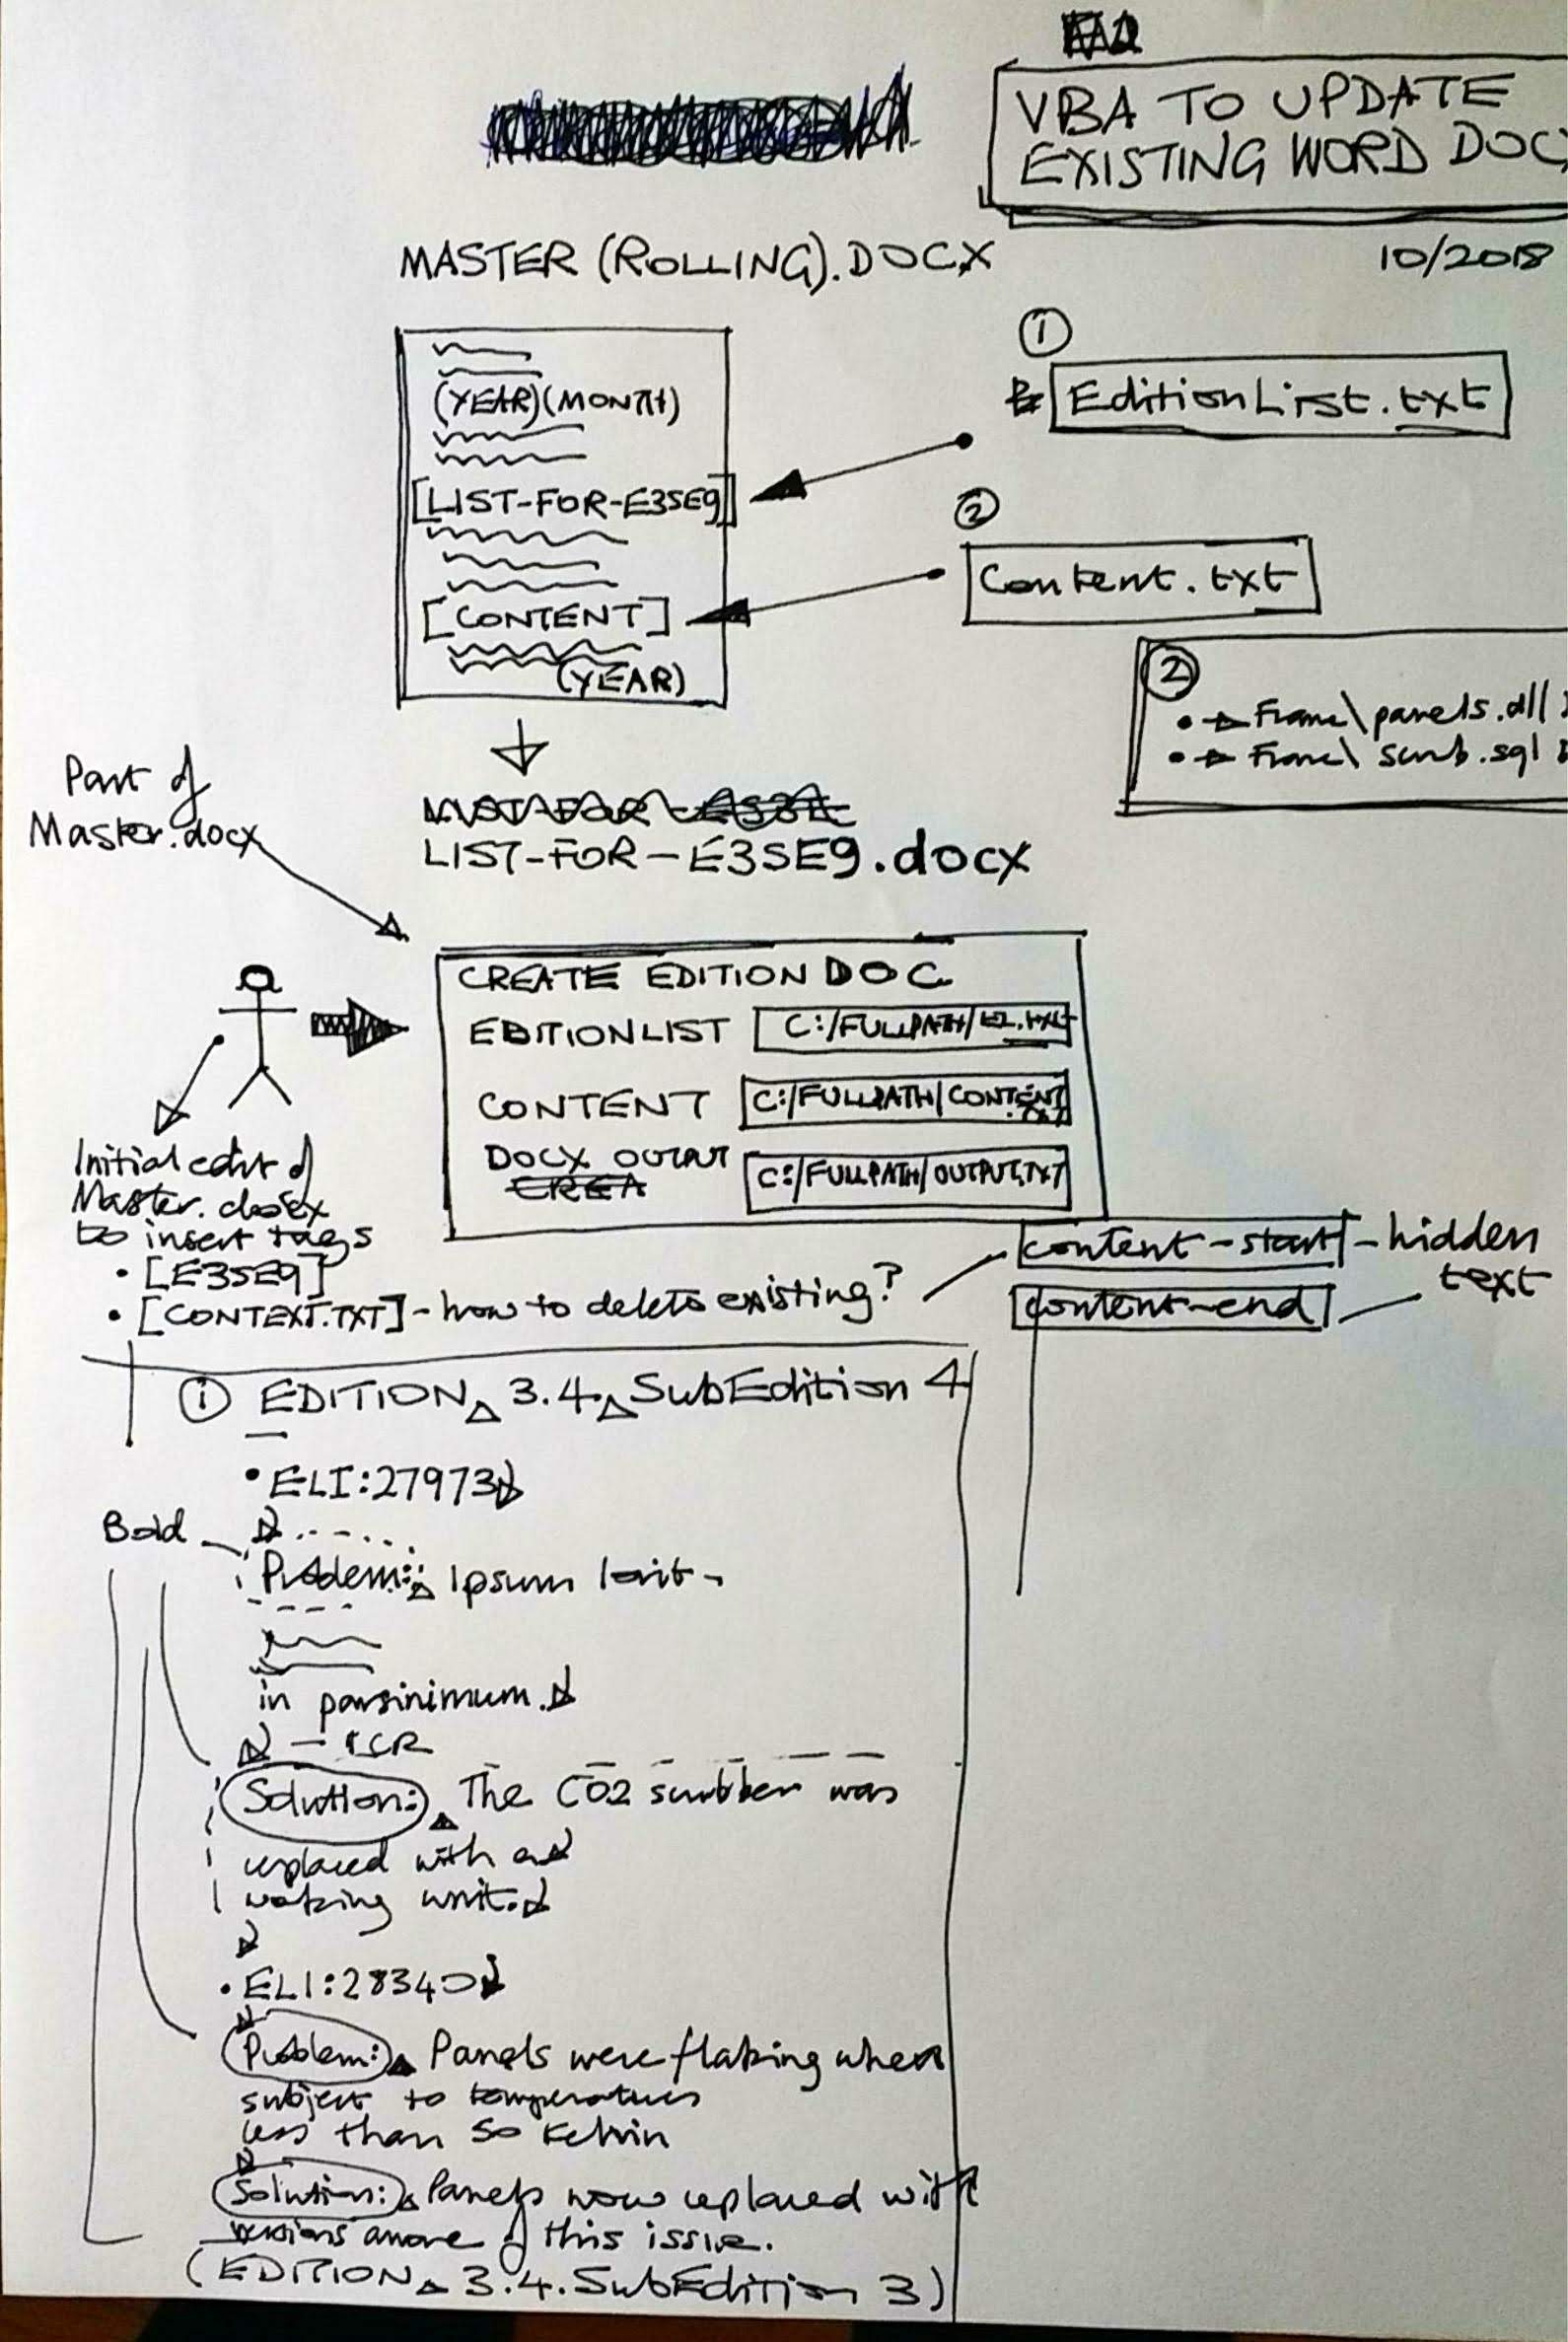 VBA TO UPDATE
EXISTING WORD DOC
10/2018
MASTER (ROLLING).DOCX
(YEAR)(MONTH)
[LIST-FOR-E3SE9]
[CONTENT]
(YEAR)
①
EditionList.txt
②
Content.txt
②
• Frame\panels.dll
• Frame\scrub.sql
Part of
Master.docx
LIST-FOR-E3SE9.docx
CREATE EDITION DOC
EDITIONLIST C:/FULLPATH/EL.TXT
CONTENT C:/FULLPATH/CONTENT.TXT
DOCX OUTPUT C:/FULLPATH/OUTPUT.TXT
Initial edit of
Master.docx
to insert tags
• [E3SE9]
• [CONTEXT.TXT] - how to delete existing?
content-start - hidden
text
content-end
① EDITION 3.4 SubEdition 4
• ELI:27973
Bold
Problem: Ipsum
in parsinimum.
Solution: The CO2 scrubber was
replaced with a
working unit.
• ELI:28340
Problem: Panels were flaking when
subject to temperatures
less than 50 Kelvin
Solution: Panels now replaced with
versions of this issue.
(EDITION 3.4.SubEdition 3)